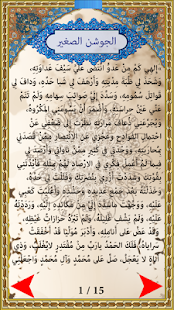 الجوشن الصغير
إلهي كم من عدو انتضى علي سيف عداوته،
وشحذ لي ظبة مديته، وأرهف لي شبا حده، وداف لي
قواتل سمومه، وسدد إلي صوائب سهامه، ولم تنم
عني عين حراسته، وأضمر أن يسومني المكروه،
ويجرعني ذعاف مرارته، فنظرت إلى ضعفي عن
احتمال الفوادح، وعجزي عن الانتصار ممن قصدني
بمحاربته، ووحدتي في كثير ممن ناواني وأرصد لي
فيما لم أعمل فكري في الإرصاد لهم بمثله، فأيدتني
بقوتك، وشددت أزري بنصرتك، وفللت لي حده،
وخذلته بعد جمع عديده وحشده، وأعليت كعبي
عليه، ووجهت ما سدد إلي من مكائده إليه، ورددته
عليه، ولم يشف غليله، ولم تبرد حزازات غيظه،
وقد عض علي أنامله، وأدبر موليا قد أخفقت
سراياه، فلك الحمد يا رب من مقتدر لا يغلب، وذي
أناة لا يعجل، صل على محمد وآل محمد واجعلني
1 / 15